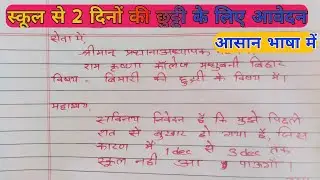 स्कूल से 2 दिनों की छुट्टी के लिए आवेदन
आसान भाषा में
सेवा में,
श्रीमान् प्रधानाध्यापक,
राम कृष्णा कॉलेज मधुबनी बिहार
विषय - बिमारी की छुट्टी के विषय में।
महाशय,
सविनय निवेदन है कि मुझे पिछले
रात से बुखार हो गया है, जिस
कारण में 1 dec से 3 dec तक
स्कूल नहीं आ पाऊंगा।